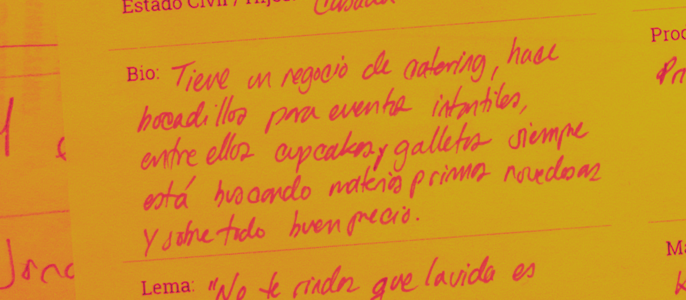 Estado Civil / Hijos: Casada
Bio: Tiene un negocio de catering, hace
bocadillos para eventos infantiles,
entre ellos cupcakes y galletas siempre
está buscando materias primas novedosas
y sobre todo buen precio.
Lema: "No te rindas que la vida es